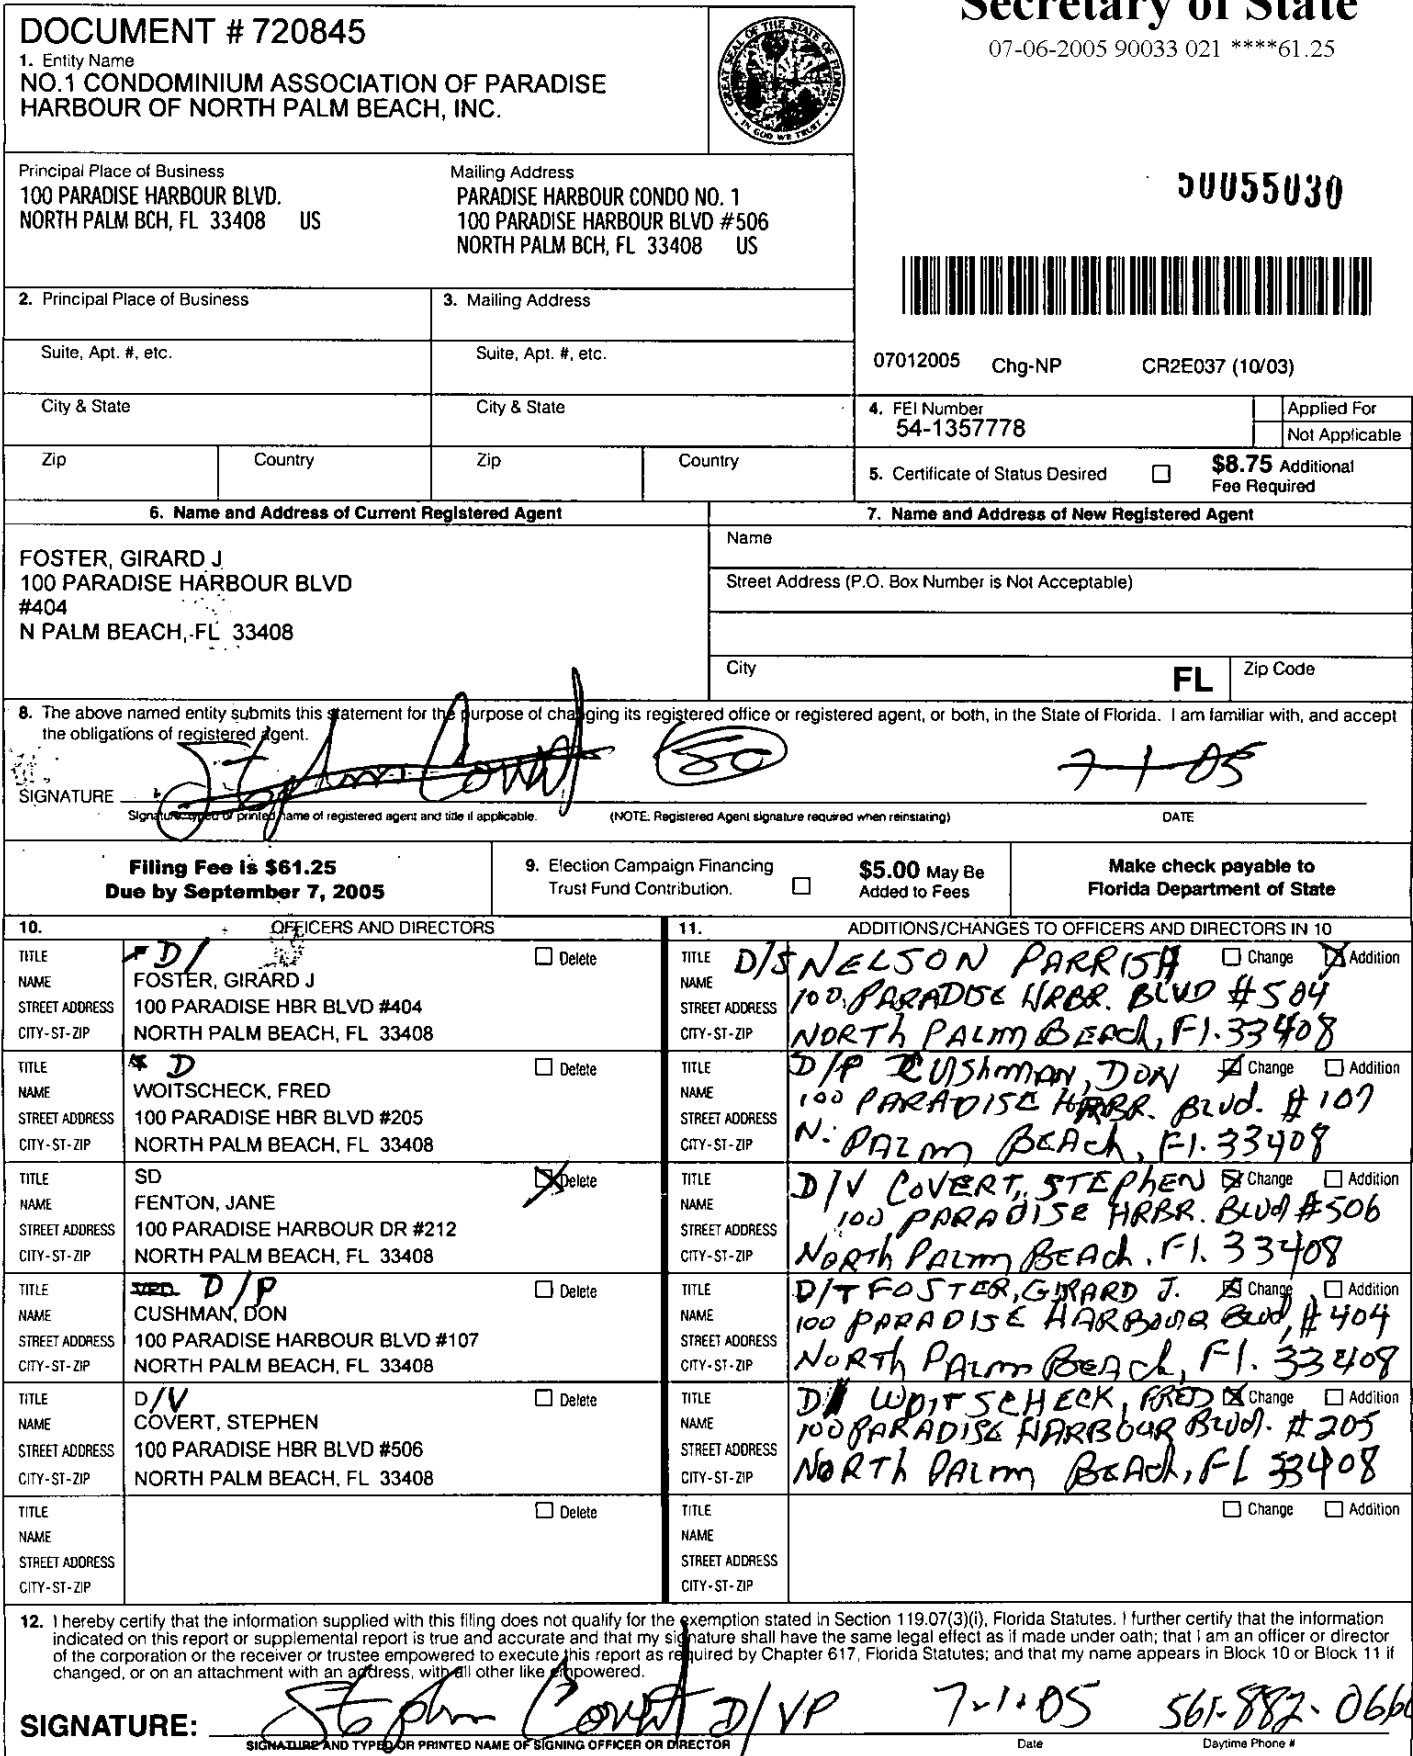 Secretary of State
07-06-2005 90033 021 ****61.25
DOCUMENT # 720845
1. Entity Name
NO.1 CONDOMINIUM ASSOCIATION OF PARADISE
HARBOUR OF NORTH PALM BEACH, INC.
GREAT SEAL OF THE STATE OF FLORIDA
IN GOD WE TRUST
Principal Place of Business
100 PARADISE HARBOUR BLVD.
NORTH PALM BCH, FL 33408 US
Mailing Address
PARADISE HARBOUR CONDO NO. 1
100 PARADISE HARBOUR BLVD #506
NORTH PALM BCH, FL 33408 US
50055030
2. Principal Place of Business
3. Mailing Address
Suite, Apt. #, etc.
Suite, Apt. #, etc.
07012005 Chg-NP CR2E037 (10/03)
City & State
City & State
4. FEI Number
54-1357778
Applied For
Not Applicable
Zip
Country
Zip
Country
5. Certificate of Status Desired
$8.75 Additional
Fee Required
6. Name and Address of Current Registered Agent
7. Name and Address of New Registered Agent
FOSTER, GIRARD J
100 PARADISE HARBOUR BLVD
#404
N PALM BEACH, FL 33408
Name
Street Address (P.O. Box Number is Not Acceptable)
City
FL
Zip Code
8. The above named entity submits this statement for the purpose of changing its registered office or registered agent, or both, in the State of Florida. I am familiar with, and accept
the obligations of registered agent.
SIGNATURE Stephen Covert SC 7-1-05
Signature, typed or printed name of registered agent and title if applicable.
(NOTE: Registered Agent signature required when reinstating)
DATE
Filing Fee is $61.25
Due by September 7, 2005
9. Election Campaign Financing
Trust Fund Contribution.
$5.00 May Be
Added to Fees
Make check payable to
Florida Department of State
10. OFFICERS AND DIRECTORS
11. ADDITIONS/CHANGES TO OFFICERS AND DIRECTORS IN 10
TITLE D/ Delete
NAME FOSTER, GIRARD J
STREET ADDRESS 100 PARADISE HBR BLVD #404
CITY-ST-ZIP NORTH PALM BEACH, FL 33408
TITLE D/S NELSON PARRISH Change Addition
NAME
STREET ADDRESS 100 PARADISE HRBR. BLVD #504
CITY-ST-ZIP NORTH PALM BEACH, Fl. 33408
TITLE D Delete
NAME WOITSCHECK, FRED
STREET ADDRESS 100 PARADISE HBR BLVD #205
CITY-ST-ZIP NORTH PALM BEACH, FL 33408
TITLE D/P CUSHMAN, DON Change Addition
NAME
STREET ADDRESS 100 PARADISE HRBR. Blvd. #107
CITY-ST-ZIP N. PALM BEACH, Fl. 33408
TITLE SD Delete
NAME FENTON, JANE
STREET ADDRESS 100 PARADISE HARBOUR DR #212
CITY-ST-ZIP NORTH PALM BEACH, FL 33408
TITLE D/V COVERT, STEPHEN Change Addition
NAME
STREET ADDRESS 100 PARADISE HRBR. Blvd #506
CITY-ST-ZIP NORTH PALM BEACH, Fl. 33408
TITLE VPD D/P Delete
NAME CUSHMAN, DON
STREET ADDRESS 100 PARADISE HARBOUR BLVD #107
CITY-ST-ZIP NORTH PALM BEACH, FL 33408
TITLE D/T FOSTER, GIRARD J. Change Addition
NAME
STREET ADDRESS 100 PARADISE HARBOUR Blvd, #404
CITY-ST-ZIP NORTH PALM BEACH, Fl. 33408
TITLE D/V Delete
NAME COVERT, STEPHEN
STREET ADDRESS 100 PARADISE HBR BLVD #506
CITY-ST-ZIP NORTH PALM BEACH, FL 33408
TITLE D WOITSCHECK, FRED Change Addition
NAME
STREET ADDRESS 100 PARADISE HARBOUR Blvd. #205
CITY-ST-ZIP NORTH PALM BEACH, FL 33408
TITLE Delete
NAME
STREET ADDRESS
CITY-ST-ZIP
TITLE Change Addition
NAME
STREET ADDRESS
CITY-ST-ZIP
12. I hereby certify that the information supplied with this filing does not qualify for the exemption stated in Section 119.07(3)(i), Florida Statutes. I further certify that the information
indicated on this report or supplemental report is true and accurate and that my signature shall have the same legal effect as if made under oath; that I am an officer or director
of the corporation or the receiver or trustee empowered to execute this report as required by Chapter 617, Florida Statutes; and that my name appears in Block 10 or Block 11 if
changed, or on an attachment with an address, with all other like empowered.
SIGNATURE: Stephen Covert D/VP 7-1-05 561-882-066
SIGNATURE AND TYPED OR PRINTED NAME OF SIGNING OFFICER OR DIRECTOR
Date
Daytime Phone #